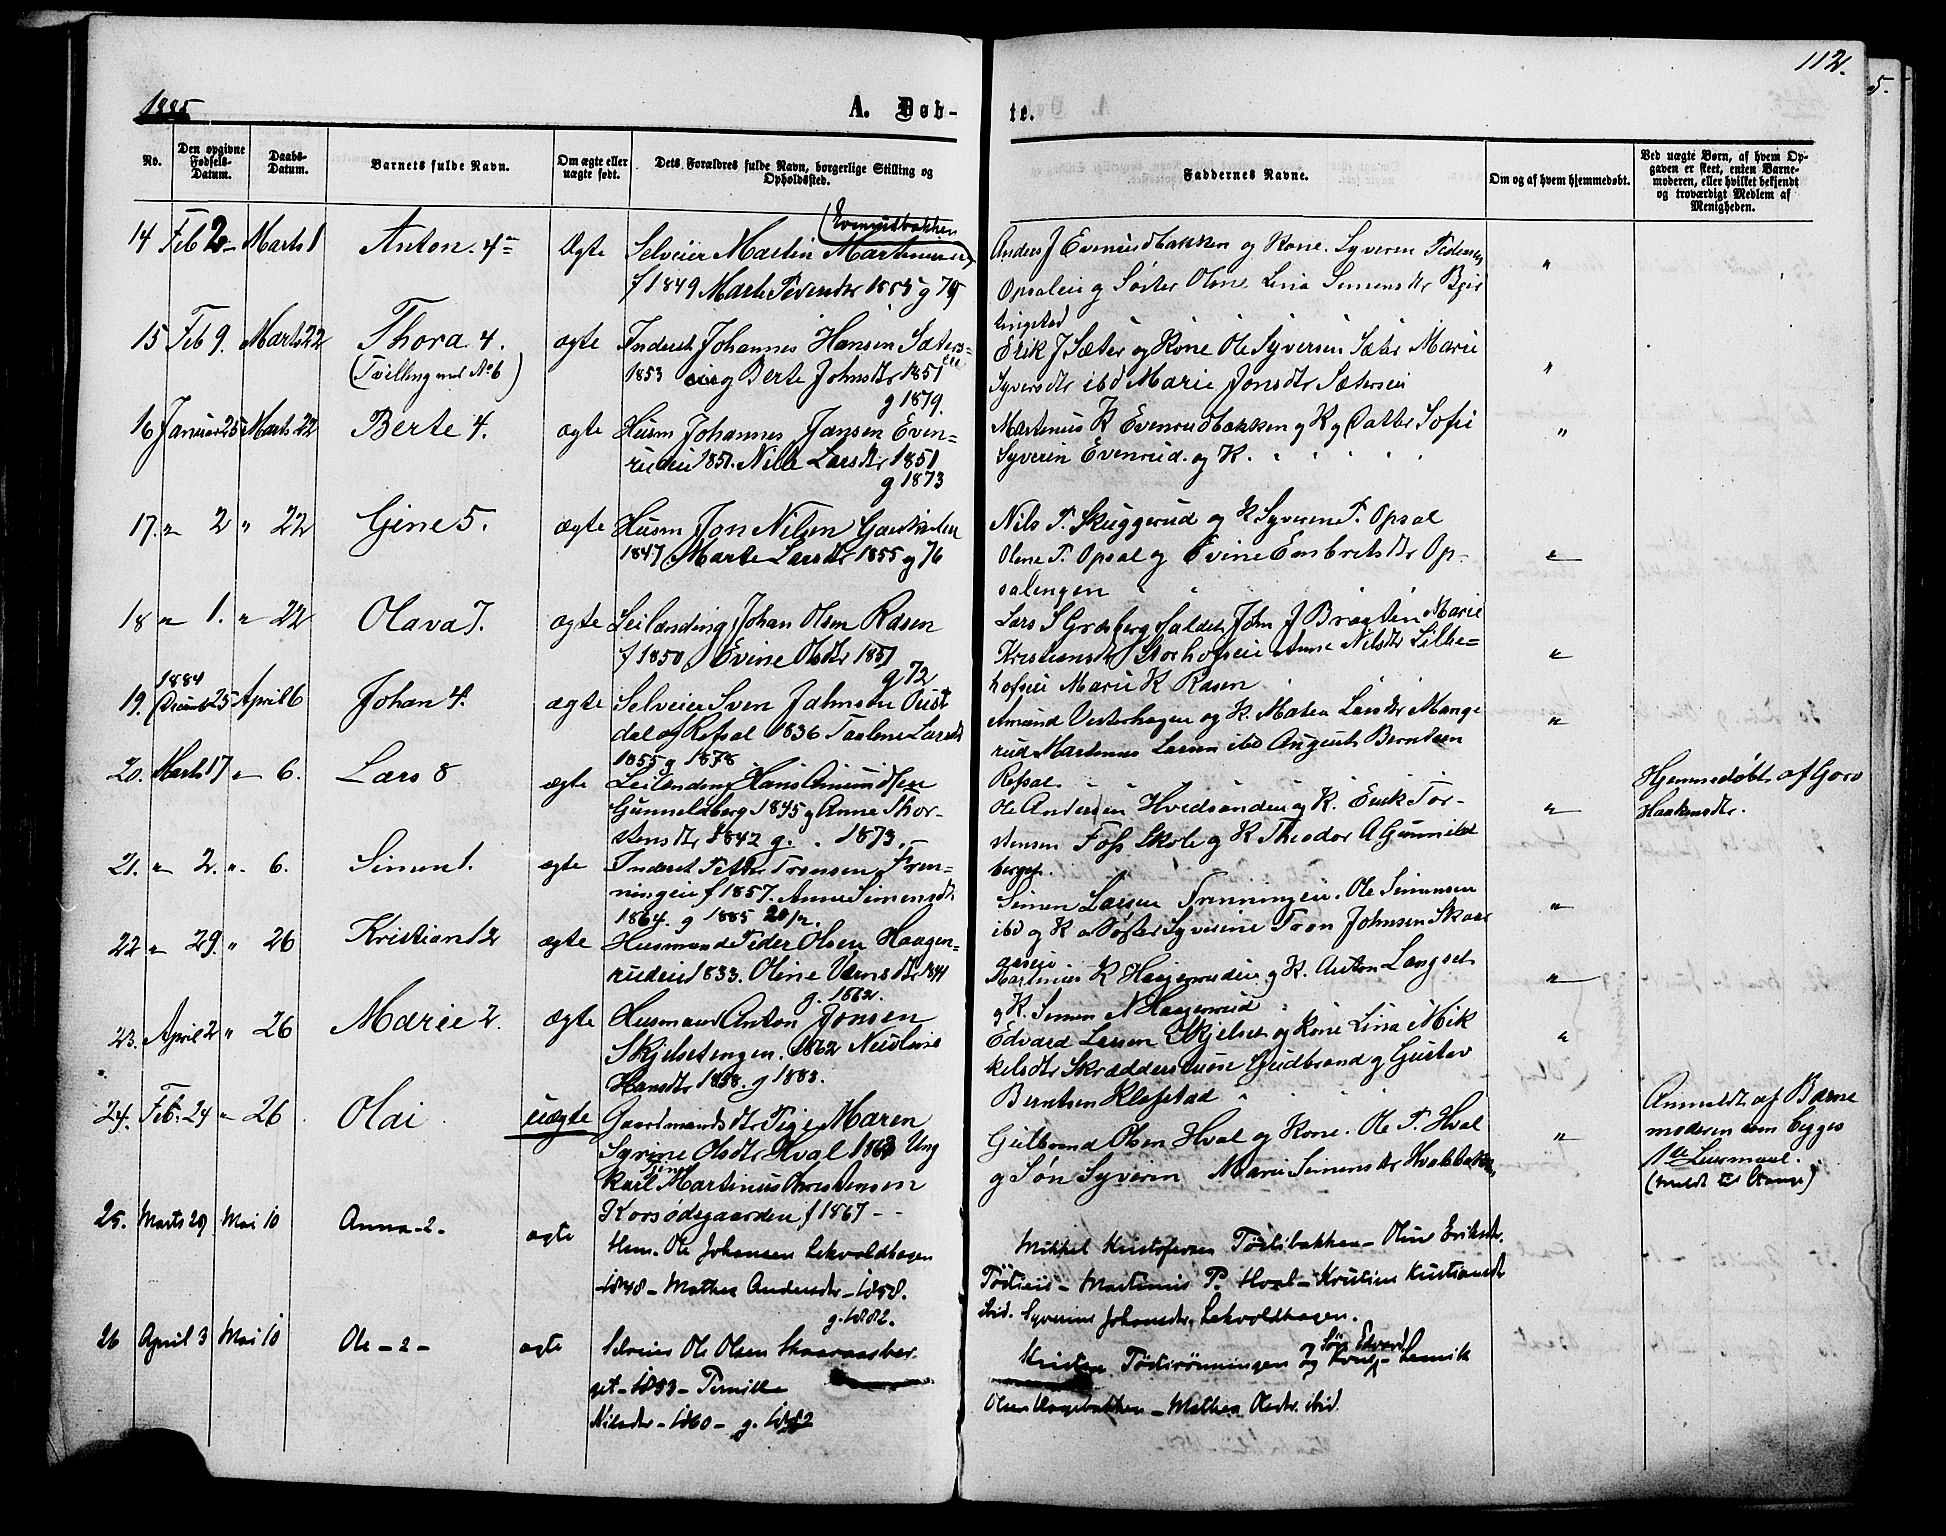 112.
5.
1885
A. Døb-
te.
No.
Den opgivne Fødsels-Datum.
Daabs-Datum.
Barnets fulde Navn.
Om ægte eller uægte født.
Dets Forældres fulde Navn, borgerlige Stilling og Opholdssted.
Faddernes Navne.
Om og af hvem hjemmedøbt.
Ved uægte Børn, af hvem Op-
gaven er skeet, enten Barne-
moderen, eller hvilket bekjendt
og troværdigt Medlem af
Menigheden.
14 Feb 2 - Marts 1 Anton. 4 Ægte
Selveier Martin Martinsen
f 1849 Marte Pedersdtr 1855 g 79
Anders J Evenrudbakken og Kone. Syveren Pedersen
Opsaleie og Søster Oline Lina Simensdtr Bjer
tingstad
15 Feb 9. Marts 22 Thora 4. ægte
(Tvilling med No 6)
Inderst Johannes Hansen Sæters-
1853 og Berte Johnsdtr 1851
g 1879.
Erik J Sæter og Kone Ole Syversen Sæter Marie
Syversdtr ibd Marie Jonsdtr Sæterseie
16 Januar 25 Marts 22 Berte 4. ægte
Husm Johannes Jansen Even-
rudeie 1851. Nille Larsdtr 1851
g 1873
Martinus K Evenrudbakken og K og Datter Sofie
Syverin Evenrud. og K.
17. " 2 " 22 Gine 5. ægte
Husm Jon Nilsen
1847 Marte Larsdtr 1855 g 76
Nils P. Skuggerud og K Syveren P. Opsal
Olene P. Opsal og Evine Embretsdtr Op-
salengen
18 " 1. " 22 Olava 7. ægte
Leilænding Johan Olsen Rasen
f 1850, Evine Olsdtr 1851
g 72
Lars S Græsberg John J Bragten Marie
Kristiansdtr Storhofseie Anne Nilsdtr Lille-
hofseie Marie K Rasen
19. 1884 Decemb 25 April 6 Johan 4. ægte
Selveier Sven Jahnsen Oust
dal af Refsal 1836 Larsdtr
1855 g 1878
Amund Vesterhagen og K. Matea Larsdtr Mange
rud Martinus Larsen ibd August Berntsen
Refsal.
20. Marts 17 " 6. Lars 8 ægte
Leilænding Hans Amundsen
Gunneldsberg 1845 og Anne Thor-
stensdtr 1842 g. 1873.
Ole Andersen Hvedsandeie og K. Erik Tor-
stensen Foss Skole og K Theodor A Gunnilds
berget.
Hjemmedøbt af Goro
Haakensdtr.
21. " 2. " 6. Simen 1. ægte
Inderst Peter Tronsen Fren-
ningeie f 1857. Anne Simensdtr
1864. g 1885
Simen Larsen Frenningeie. Ole Simensen
ibd og K Søster Syverine Tron Johnsen Skaar
aaseie
22 " 29. " 26 Kristian 12 ægte
Husmand Peder Olsen Haagen-
rudeie 1833. Oline
g. 1862.
Martinius K Haagenrudeie og K. Anton Langset
og K. Simen N Haagenrud
23. April 2 " 26 Marie 2. ægte
Husmand Anton Jonsen
Skjelsetengen. 1862 Nicoline
Hansdtr 1858. g 1883.
Edvard Larsen Skjelset og Kone Lina Mik
kelsdtr Skrædderstuen Gudbrand og Gustav
Berntsen Klefstad
24. Feb. 24 " 26 Olai uægte
Gaardmandsdtr Pige Maren
Syrine Olsdtr Hval 1863 Ung
karl Martinus Kristensen
Korsødegaarden f 1867 - -
Gulbrand Olsen Hval og Kone. Ole P. Hval
og Søn Syverin Marie Simensdtr Hvalbakken
Anmeldt af Barne
moderen som begges
1ste Leiermaal.
(meldt til Stange)
25. Marts 29 Mai 10 Anna - 2 - ægte
Hsm. Ole Johansen Lekvoldhagen
- 1848 - Mathea Andersdtr - 1858.
g. 1882.
Mikkel Kristofersen Tødtibakken - Oline Eriksdtr.
Tødtieie - Martinus P. Hval - Kristine Kristiansdtr
ibid. Syverine Johansdtr. Lekvoldhagen.
26 April 3 Mai 10 Ole - 2 - ægte
Selveier Ole Olsen Skaaraasber-
get - 1853 - Pernille
Nilsdtr - 1860 - g. 1882
Kristen Tødtirønningen og Søn Edvard
Olsen - Mathea Olsdtr. ibid.